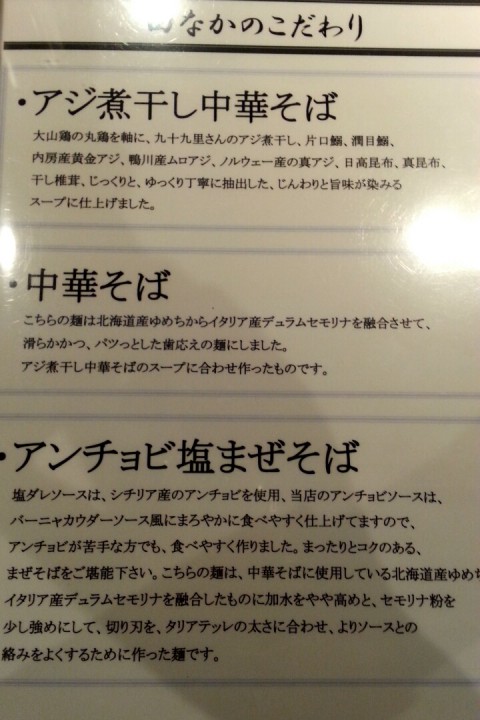 なかのこだわり
・アジ煮干し中華そば
大山鶏の丸鶏を軸に、九十九里さんのアジ煮干し、片口鰯、潤目鰯、
内房産黄金アジ、鴨川産ムロアジ、ノルウェー産の真アジ、日高昆布、真昆布、
干し椎茸、じっくりと、ゆっくり丁寧に抽出した、じんわりと旨味が染みる
スープに仕上げました。
・中華そば
こちらの麺は北海道産ゆめちからイタリア産デュラムセモリナを融合させて、
滑らかかつ、パツっとした歯応えの麺にしました。
アジ煮干し中華そばのスープに合わせ作ったものです。
・アンチョビ塩まぜそば
塩ダレソースは、シチリア産のアンチョビを使用、当店のアンチョビソースは、
バーニャカウダーソース風にまろやかに食べやすく仕上げてますので、
アンチョビが苦手な方でも、食べやすく作りました。まったりとコクのある、
まぜそばをご堪能下さい。こちらの麺は、中華そばに使用している北海道産ゆめち
イタリア産デュラムセモリナを融合したものに加水をやや高めと、セモリナ粉を
少し強めにして、切り刃を、タリアテッレの太さに合わせ、よりソースとの
絡みをよくするために作った麺です。